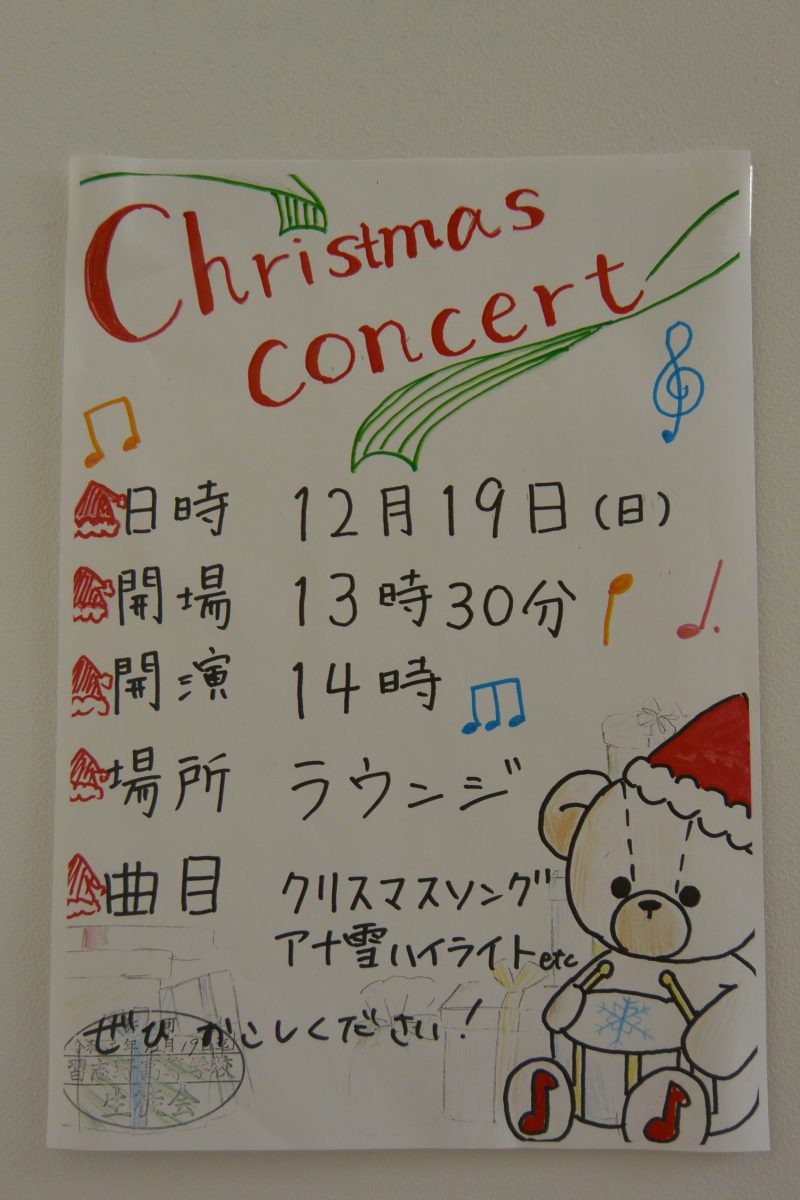 Christmas
concert
日時 12月19日(日)
開場 13時30分
開演 14時
場所 ラウンジ
曲目 クリスマスソング
アナ雪ハイライトetc
ぜひ おこしください!
月19
習志野高等学校
生徒会